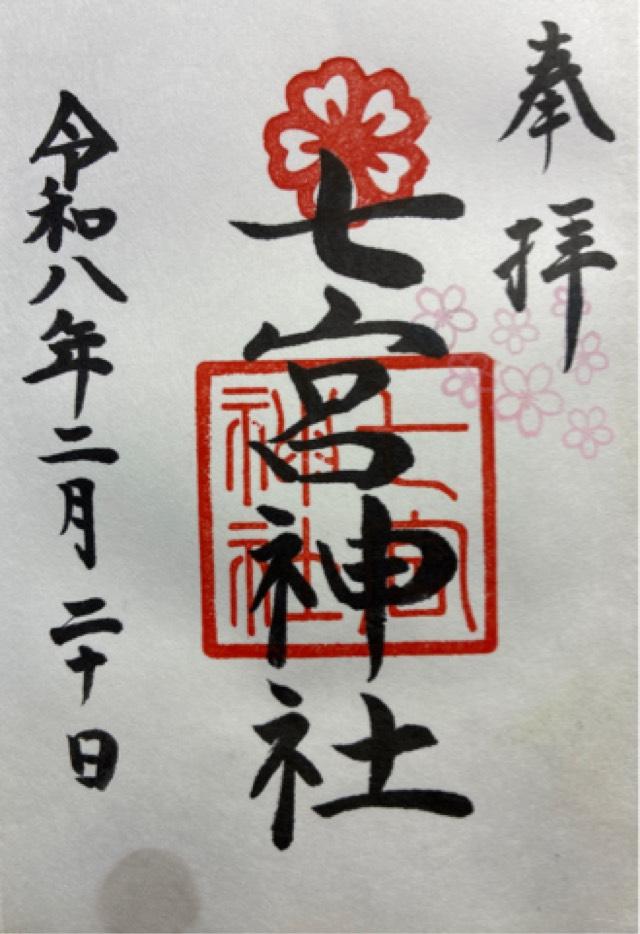 奉拝
七宮神社
七宮神社
令和八年二月二十日